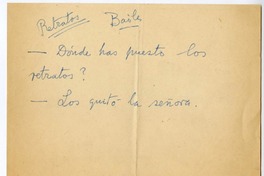 Retratos Baile
— Dónde has puesto los
retratos?
— Los gustó la señora.